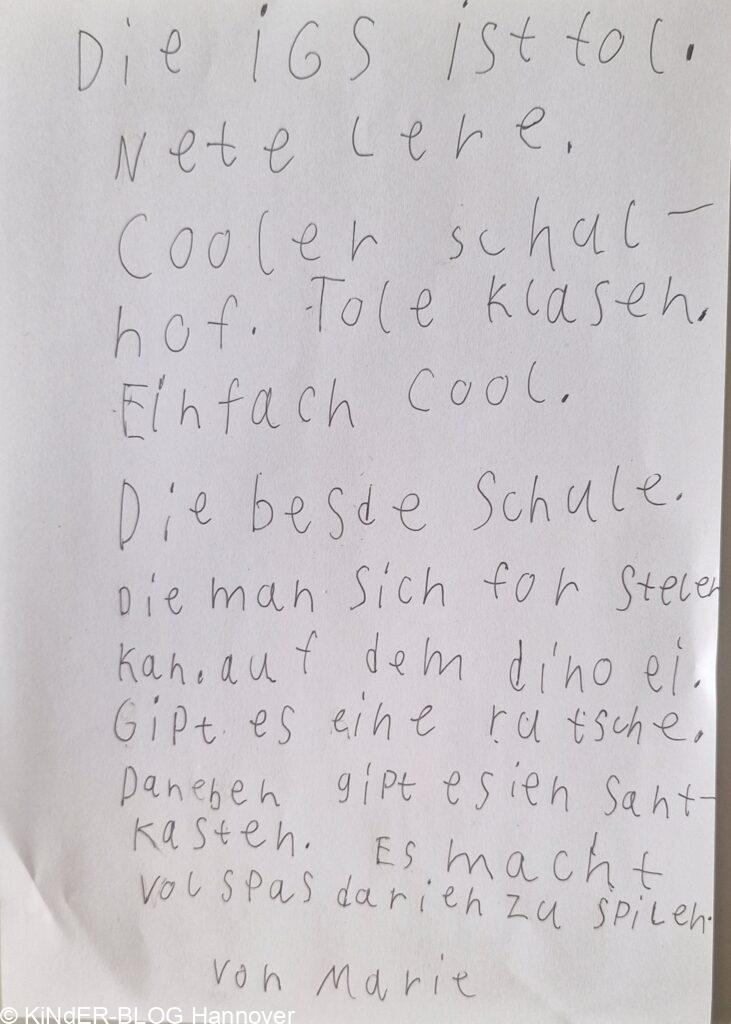 Die iGS ist tol.
Nete Lere.
Cooler schul-
hof. Tole Klasen.
Einfach cool.
Die besde Schule.
Die man Sich for stelen
kan. auf dem dino ei.
Gipt es eine rutsche.
Daneben gipt es ien Sant-
kasten. Es macht
vol spas darien zu spilen.
von Marie
© KINdER-BLOG Hannover